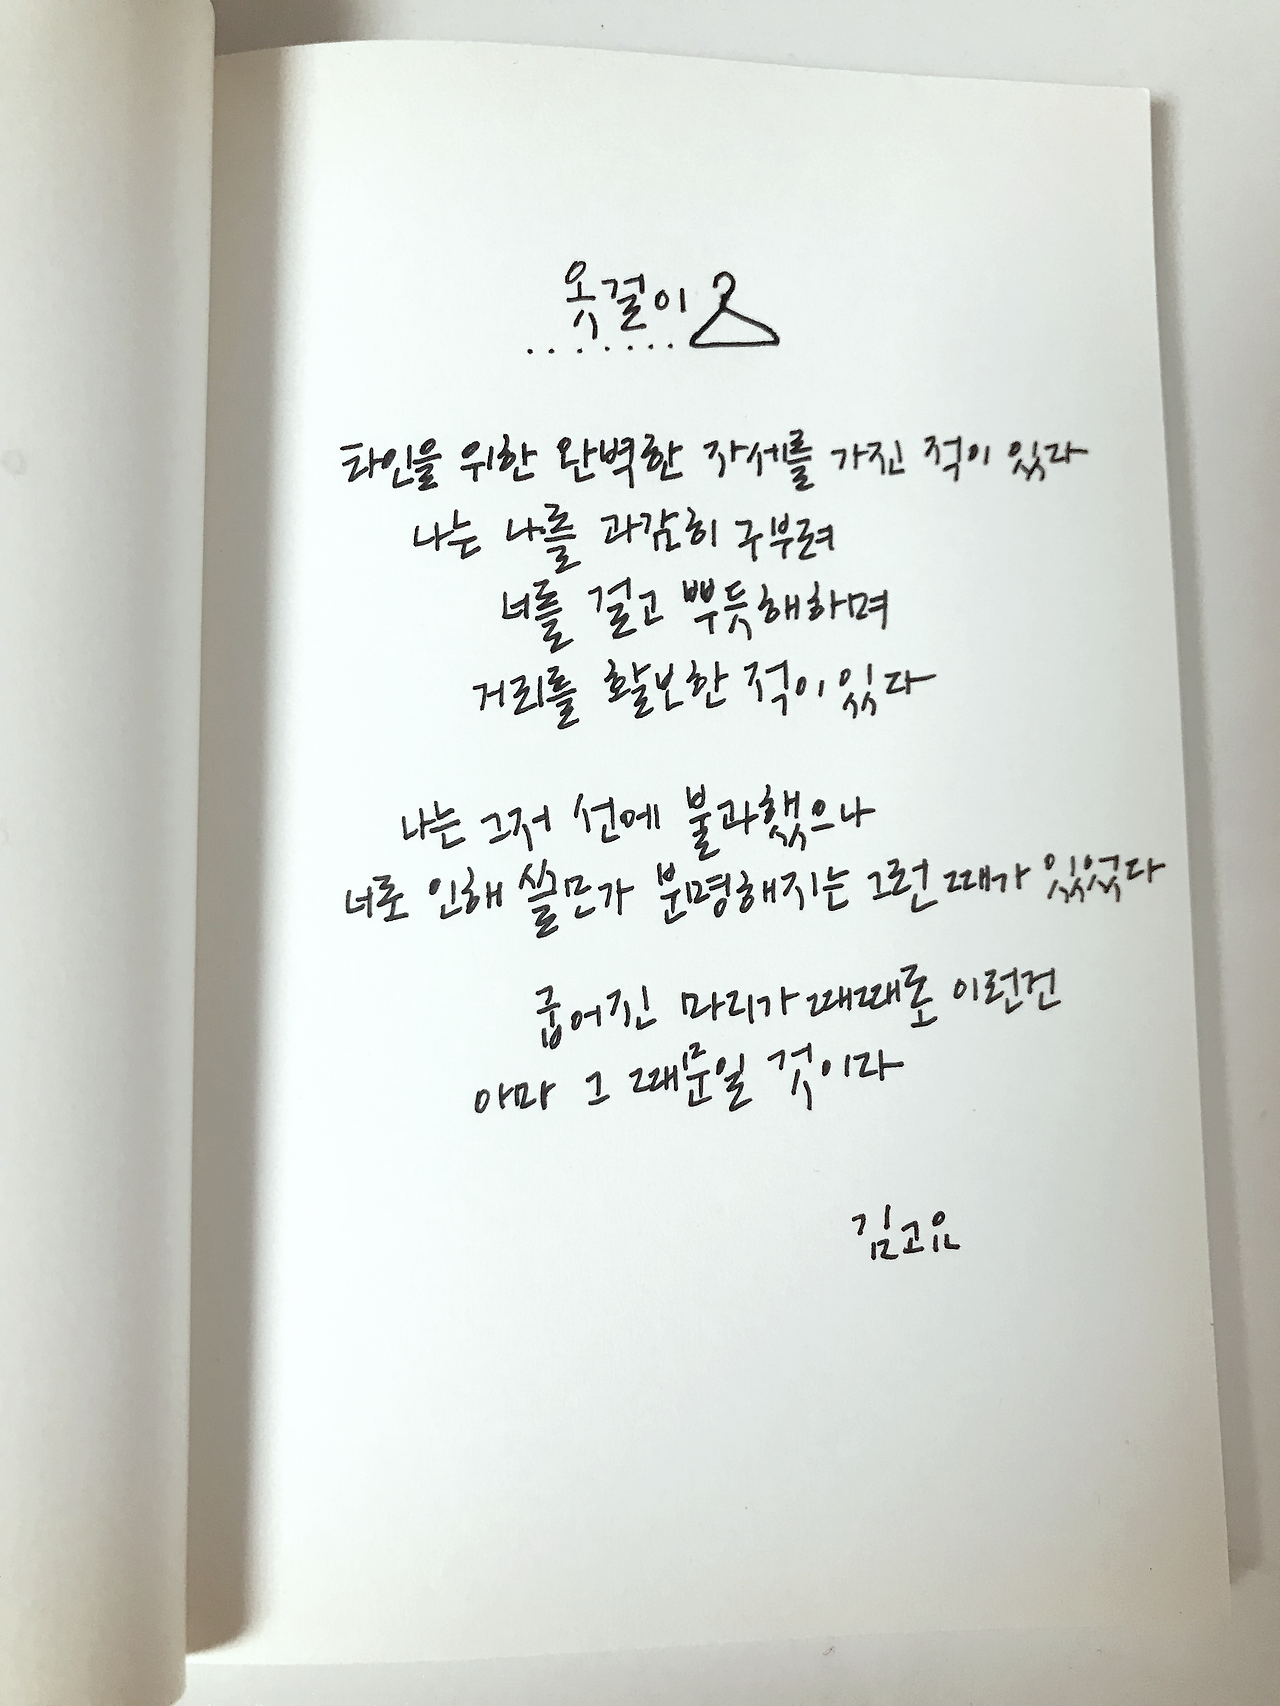 옷걸이
타인을 위한 완벽한 자세를 가진 적이 있다
나는 나를 과감히 구부려
너를 걸고 뿌듯해하며
거리를 활보한 적이 있다
나는 그저 선에 불과했으나
너로 인해 쓸모가 분명해지는 그런 때가 있었다
굽어진 마리가 때때로 이런건
아마 그 때문일 것이다
김고요